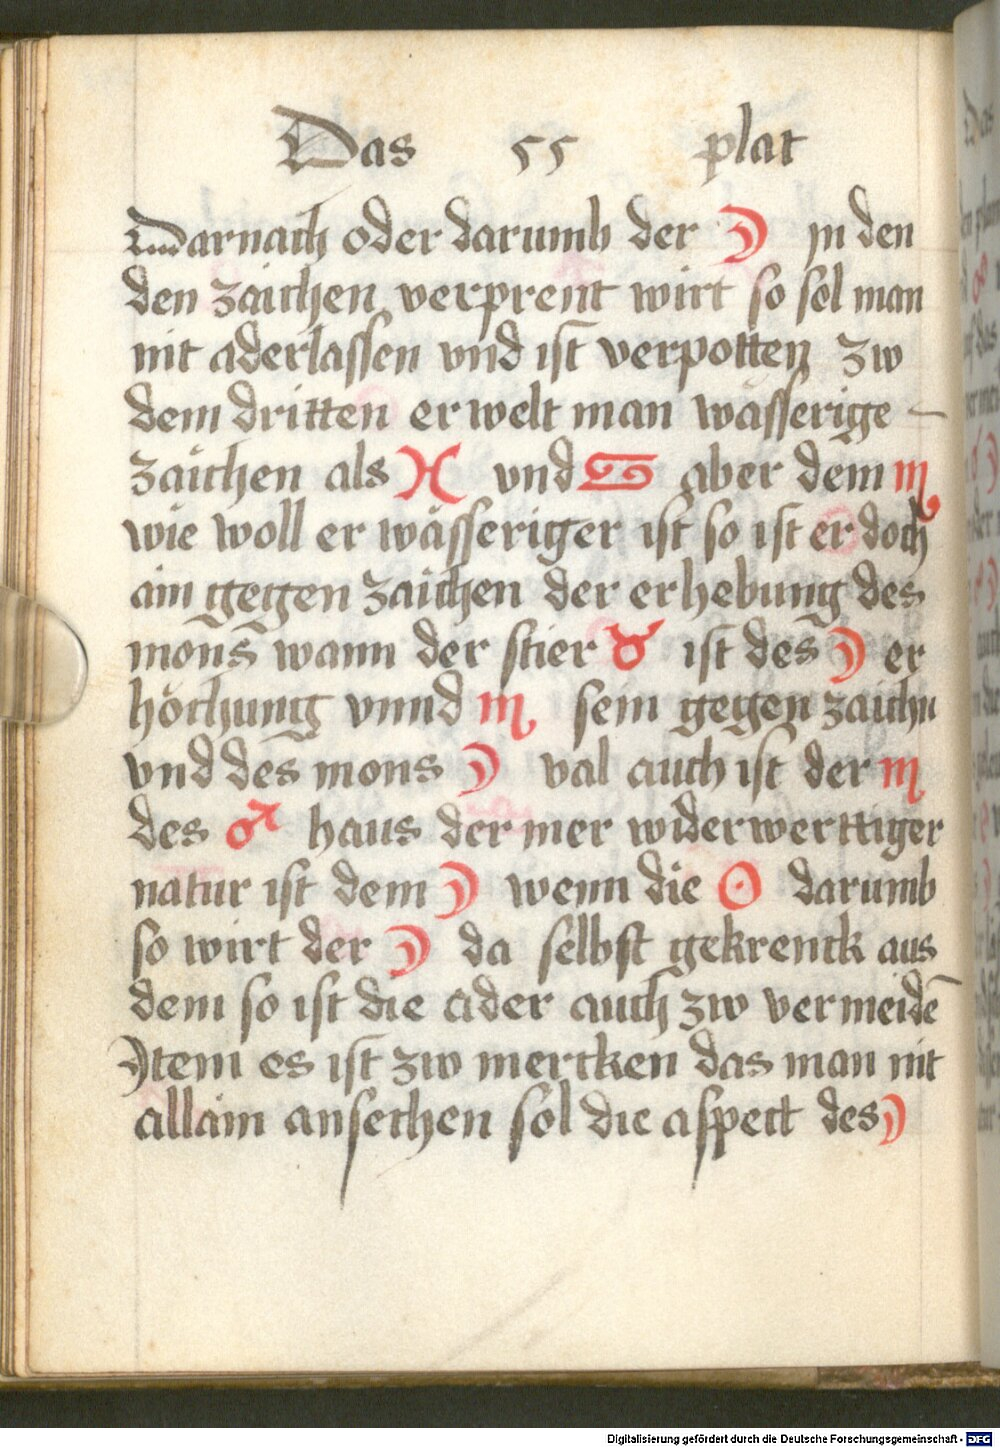 Das 55 plat
Darnach oder darumb der ☽ jn den
den zaichen verprent wirt so sol man
nit aderlassen vnd ist verpotten zw
dem dritten erwelt man wässerige
zaichen als ♓ vnd ♋ aber dem ♏
wie woll er wässeriger ist so ist er doch
ain gegen zaichen der erhebung des
mons wann der stier ♉ ist des ☽ er
höchung vnnd ♏ sein gegen zaichn
vnd des mons ☽ val auch ist der ♏
des ♂ haus der mer widerwerttiger
natur ist dem ☽ wenn die ☉ darumb
so wirt der ☽ da selbst gekrenck aus
dem so ist die ader auch zw vermeidē
Jtem es ist zw mercken das man nit
allain ansechen sol die aspect des ☽
Digitalisierung gefördert durch die Deutsche Forschungsgemeinschaft - DFG